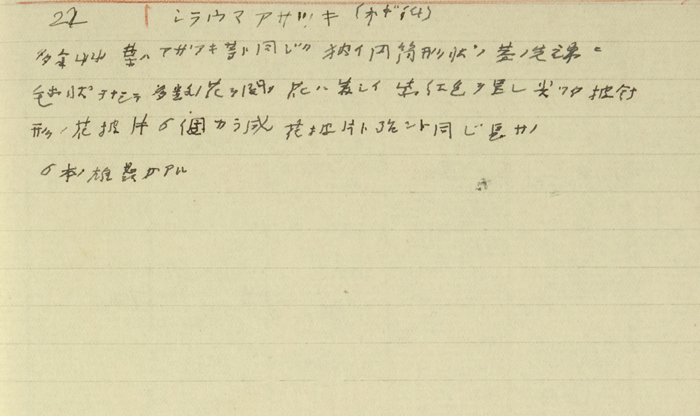 22 シラウマアサツキ (ネギ科)
多年草 葉ハアサツキ等ト同ジク 細イ円筒形状 茎ノ先端ニ
毬状ヲナシテ多数ノ花ヲ開ク 花ハ美シイ紫紅色ヲ呈シ 尖ツタ披針
形ノ花披片6個カラ成 花披片トホトンド同ジ長サノ
6本ノ雄蕊ガアル